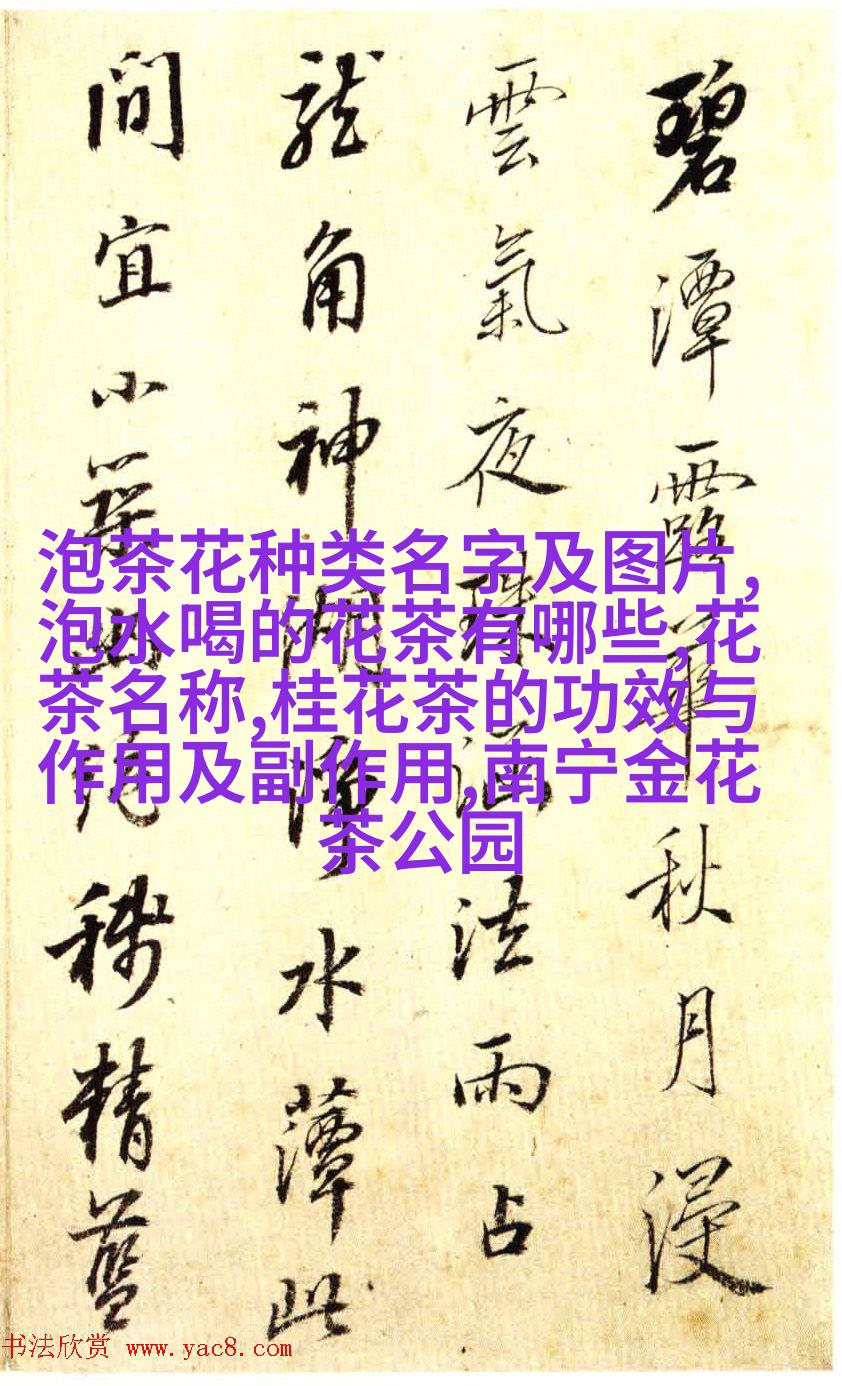 碧潭露華秋月浸
雲氣夜珠涵法雨占
龍角神湖水此
間宜小築幽稱精藍
泡茶花种类名字及图片,
泡水喝的花茶有哪些,花
茶名称,桂花茶的功效与
作用及副作用,南宁金花
茶公园
书法欣赏 www.yac8.com